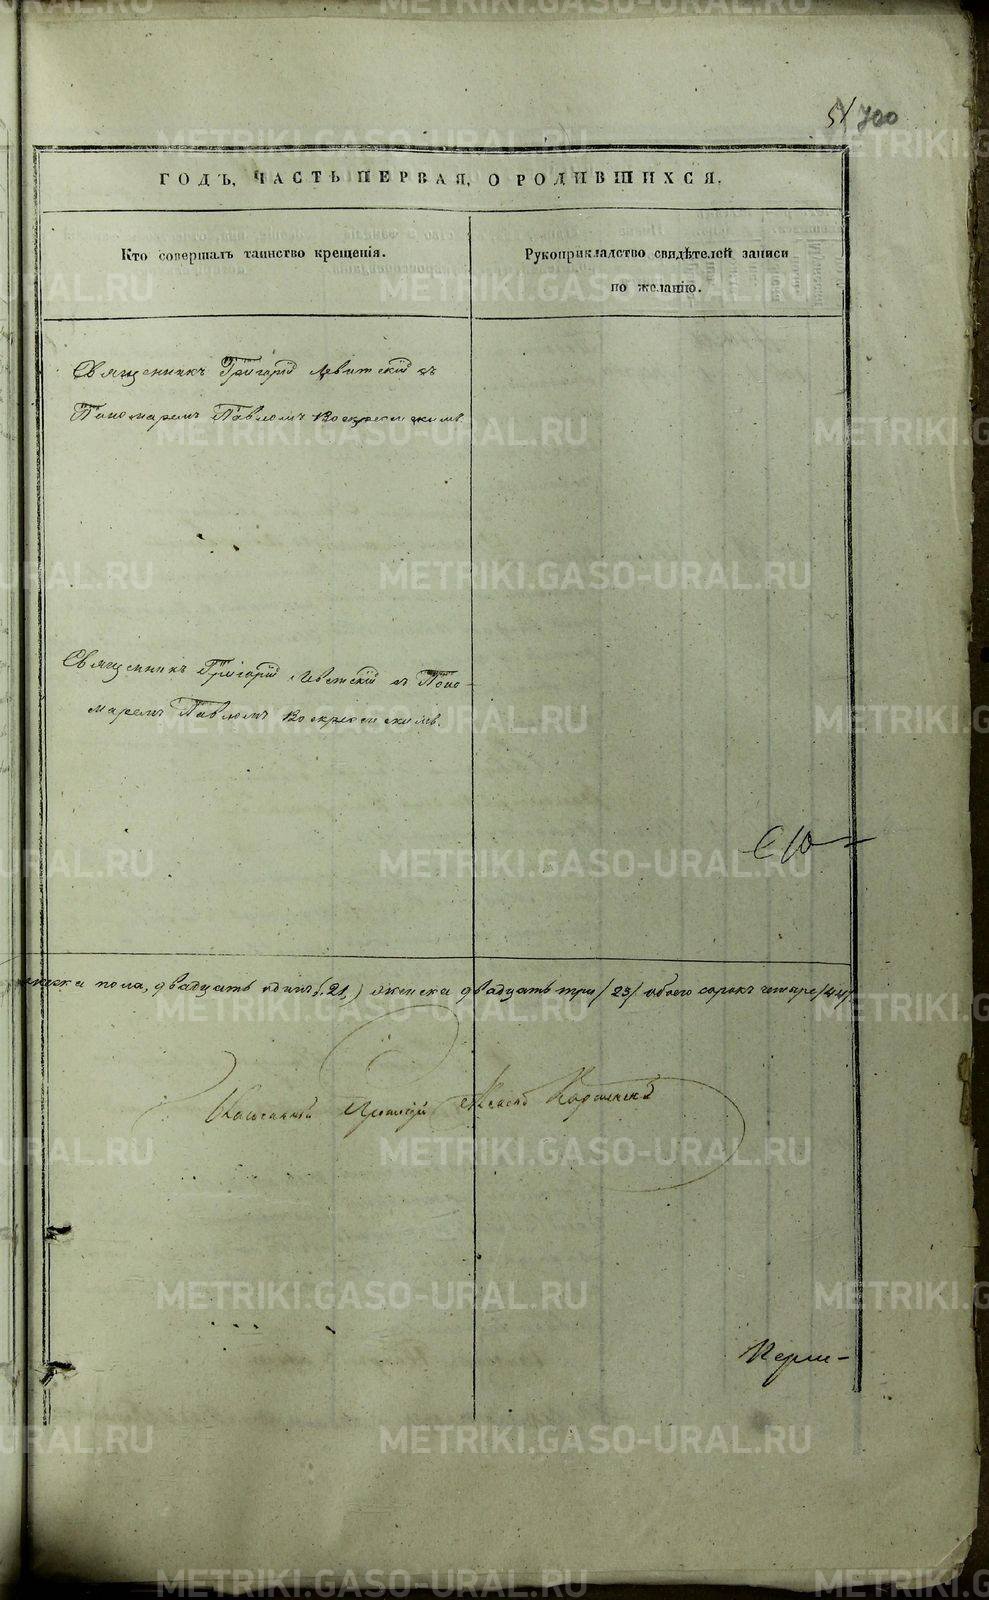 51 700
ГОДЪ, ЧАСТЬ ПЕРВАЯ, О РОДИВШИХСЯ.
Кто совершалъ таинство крещенія.
Рукоприкладство свидѣтелей записи
по желанію.
Священникъ Григорій Левитскій съ
Пономаремъ Павломъ Воскресенскимъ.
Священникъ Григорій Левитскій съ Поно-
маремъ Павломъ Воскресенскимъ.
пола, двадцать одинъ (21,) женска двадцать три /23/ обоего сорокъ четыре /44/
METRIKI.GASO-URAL.RU